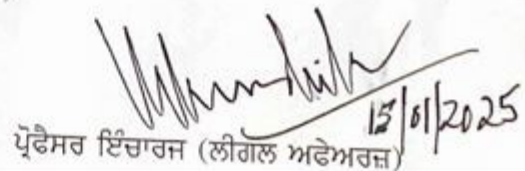 15/01/2025
ਪ੍ਰੋਫੈਸਰ ਇੰਚਾਰਜ (ਲੀਗਲ ਅਫੇਅਰਜ਼)